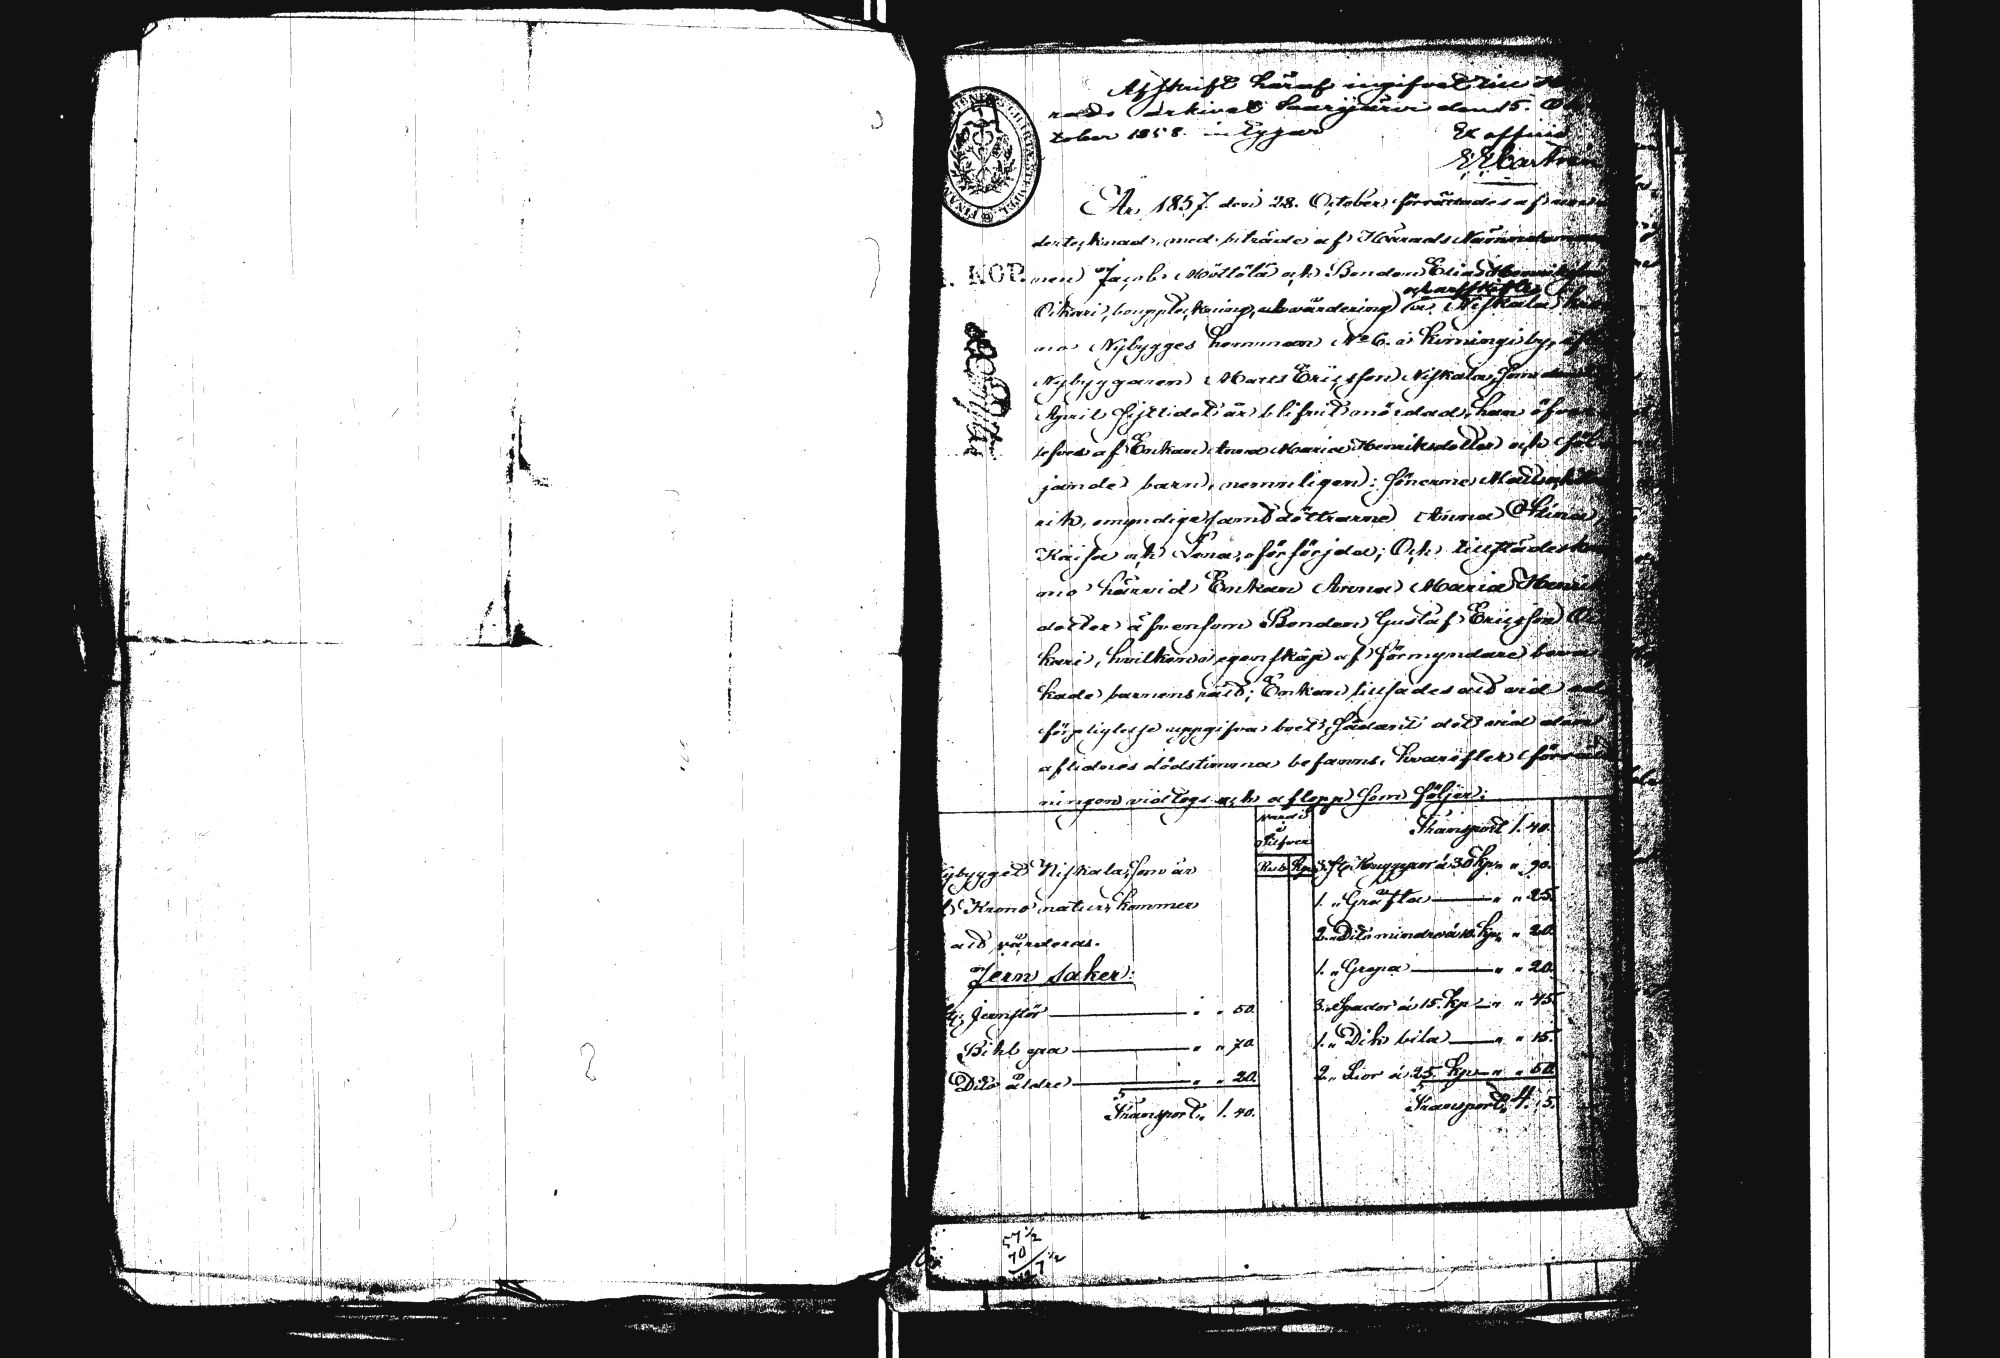 Afskrift häraf ingifvet till
rads Arkivet Saarijärvi den 15. Oc
tober 1858. 
Ex officio
År 1857 den 28. October förrättades af un
dertecknad, med biträde af Härads Nämndeman
nen Jacob Möttölä och Bonden Elias Henriksson
och arfskifte
Oikari, bouppteckning, och värdering på Niskala
no Nybygges hemman No 6. i Kiminginby, eft
Nybyggaren Matts Ericsson Niskala, som den
April sistlidet år blifvit mördad, han öfver
lefves af Enkan Anna Maria Henriksdotter och föl
jande barn, nemnligen: sönerne Matts och Hen
rik, omyndige samt döttrarne Anna Stina,
Kaisa och Lena, oförsörjda; Och tillstädeskom
mo härvid Enkan Anna Maria Henriks
dotter äfvensom Bonden Gustaf Ericsson Oi
kari, hvilken i egenskap af förmyndare beva
kade barnens rätt; Enkan tillsades att vid ed
förpligtelse uppgifva boet, sådant det vid den
aflidnes dödstimma befanns, hvarefter förrätt
ningen vidtogs och aflopp som följer:
värdet
i
Silfver
Rub. Kop.
Nybygget Niskala, som är
Krono natur, kommer
att värderas.
Jern saker:
Jernstör " " 50.
Bihl yxa " " 70.
Dito äldre " " 20.
Transport. 1. 40.
Transport 1. 40.
3. st. Huggyxor à 30 Kop. " " 90.
1. " Gräfta " " 25.
2. " Dito mindre à 10. Kop. " 20.
1. " " " 20.
3. " Spador à 15. Kp. " " 45.
1. " Dik bila " " 15.
2. " Lior à 25. Kp. " " 50.
Transport. 4. 5.
57 1/2
70
127 1/2
KOP.